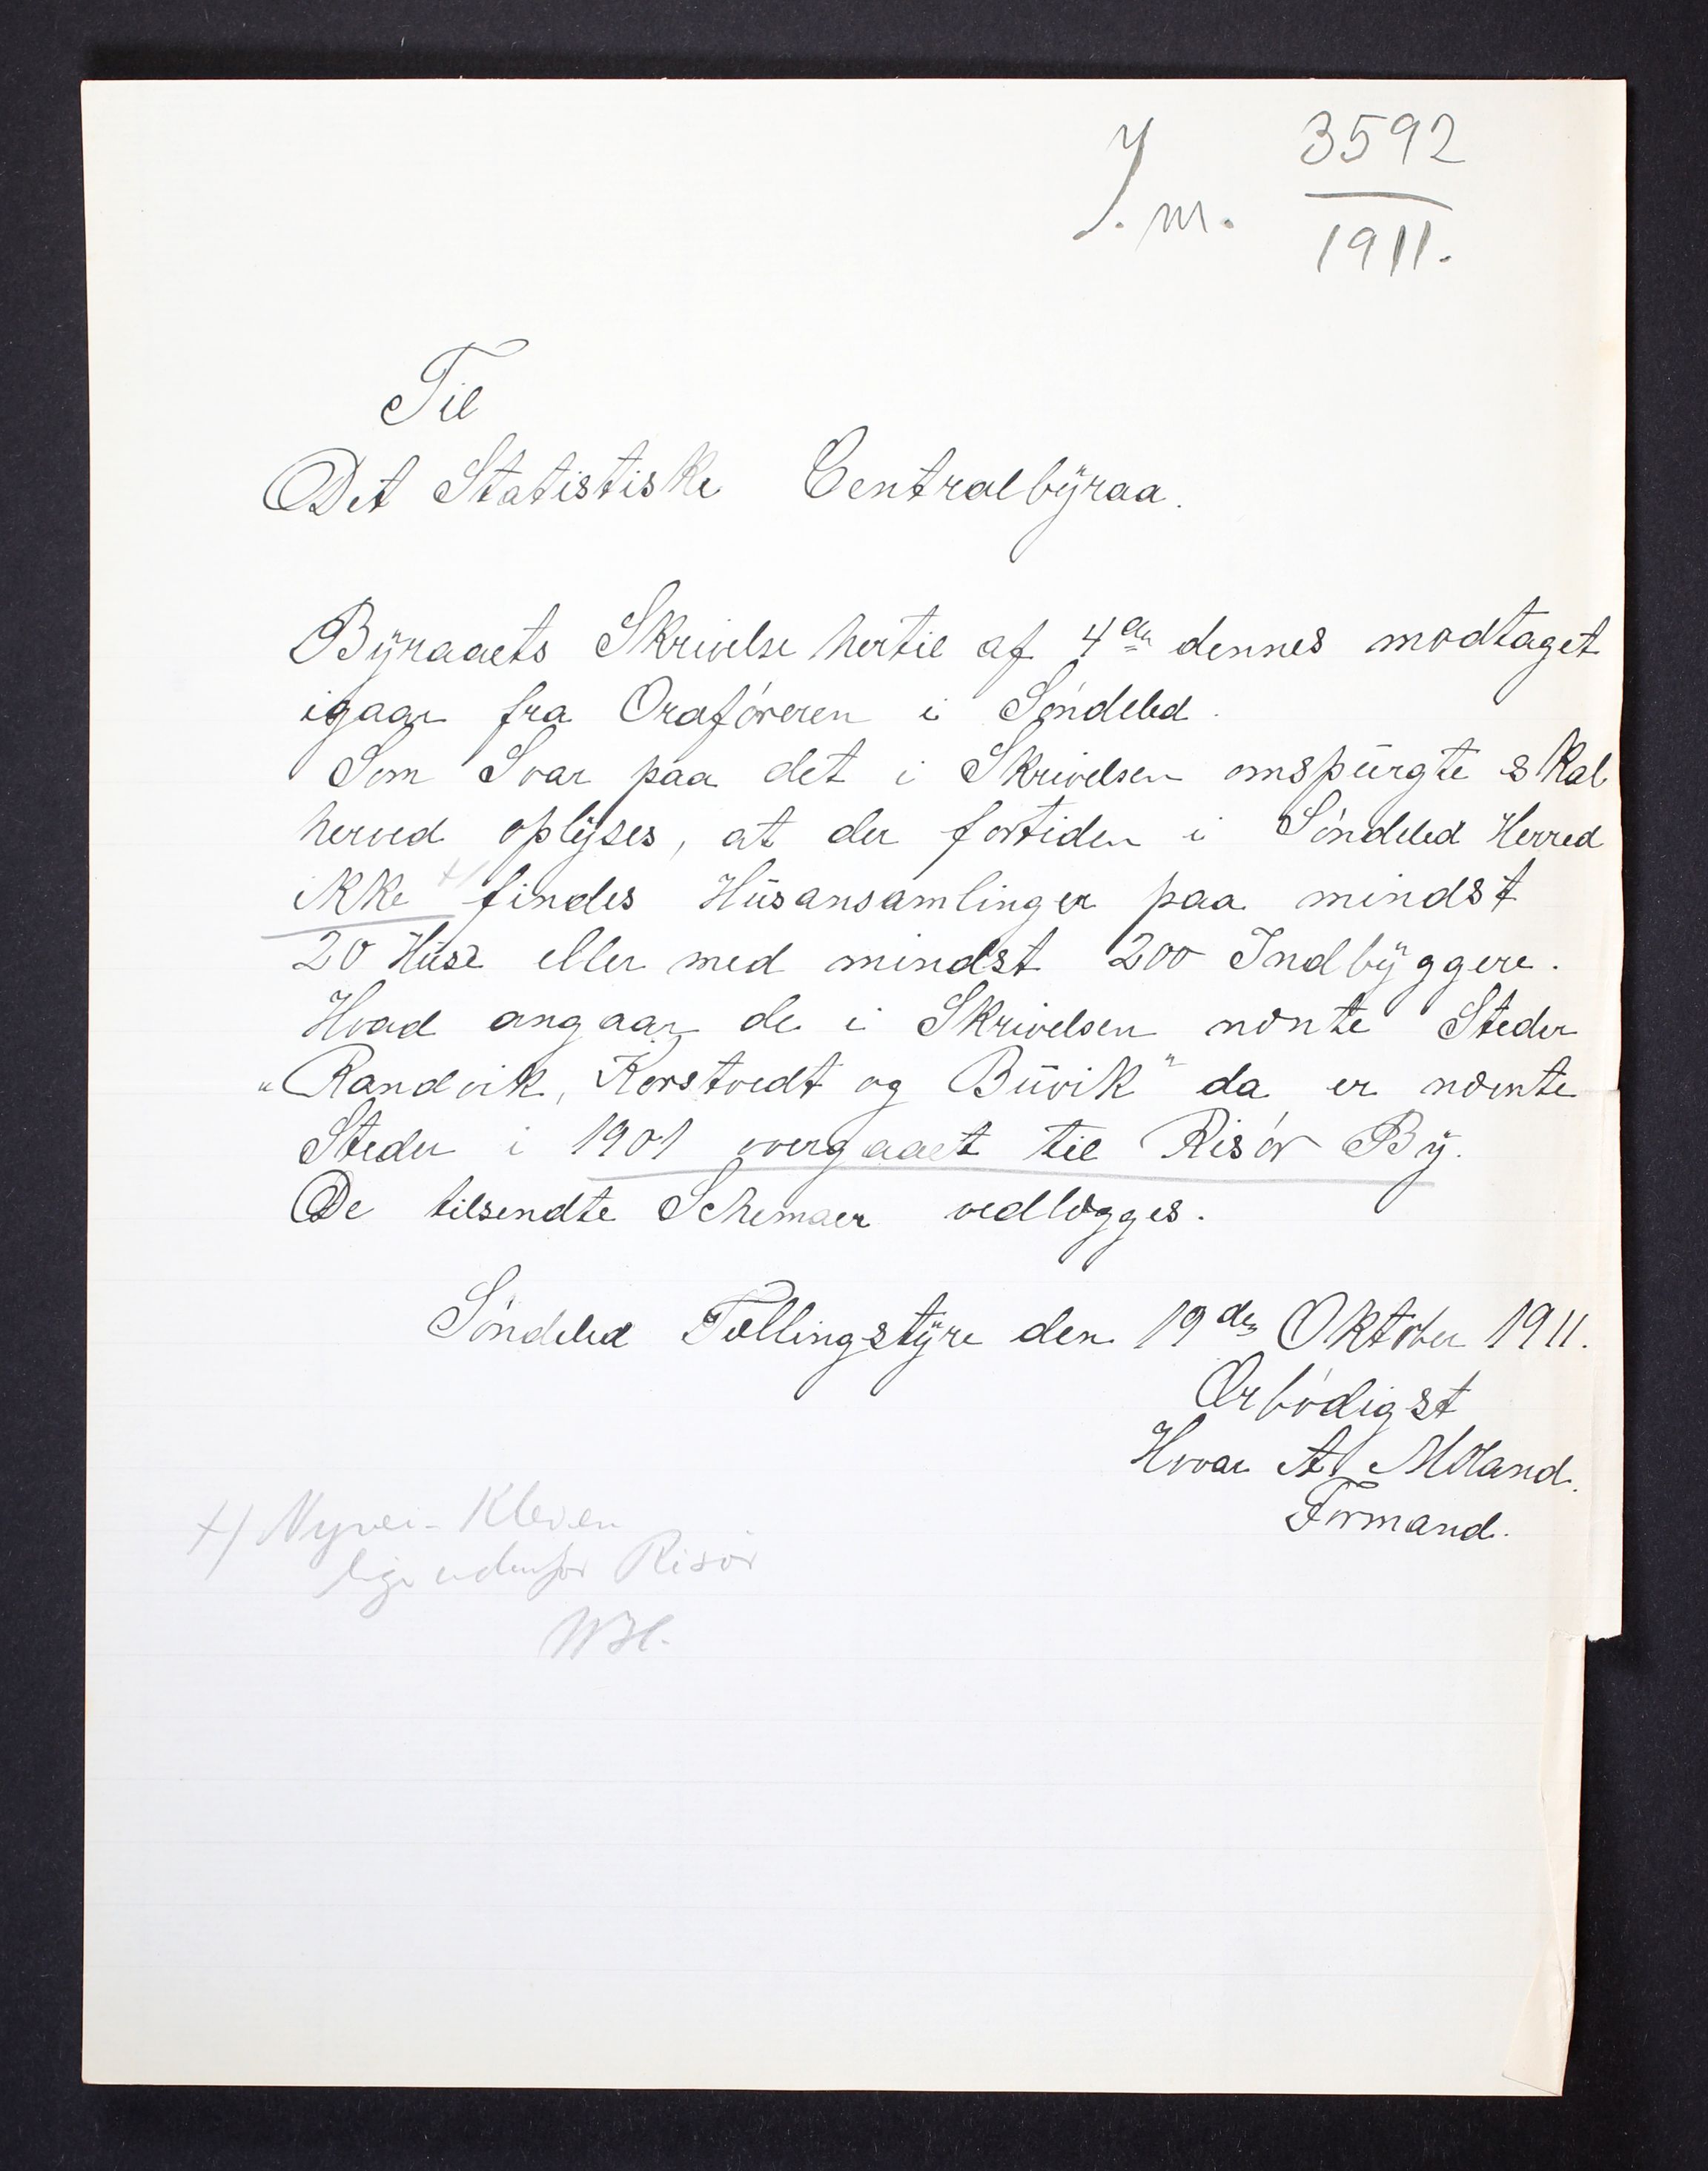 J. m. 3592
1911.
Til
Det Statistiske Centralbÿraa.
Bÿraaets Skrivelse hertil af 4de dennes modtaget
igaar fra Oraføreren i Søndeled.
Som Svar paa det i Skrivelsen omspurgte skal
herved oplÿses, at der fortiden i Søndeled Herred
ikke +) findes Husansamlinger paa mindst
20 Huse eller med mindst 200 Indbÿggere.
Hvad angaar de i Skrivelsen nævnte Steder
"Randvik, Korstvedt og Buvik" da er nævnte
Steder i 1901 overgaaet til Risør Bÿ.
De tilsendte Schemaer vedlægges.
Søndeled Tællingstÿre den 19de Oktober 1911.
Ærbødigst
A. Moland.
Formand.
+) Nyvei-Kleven
lige udenfor Risør